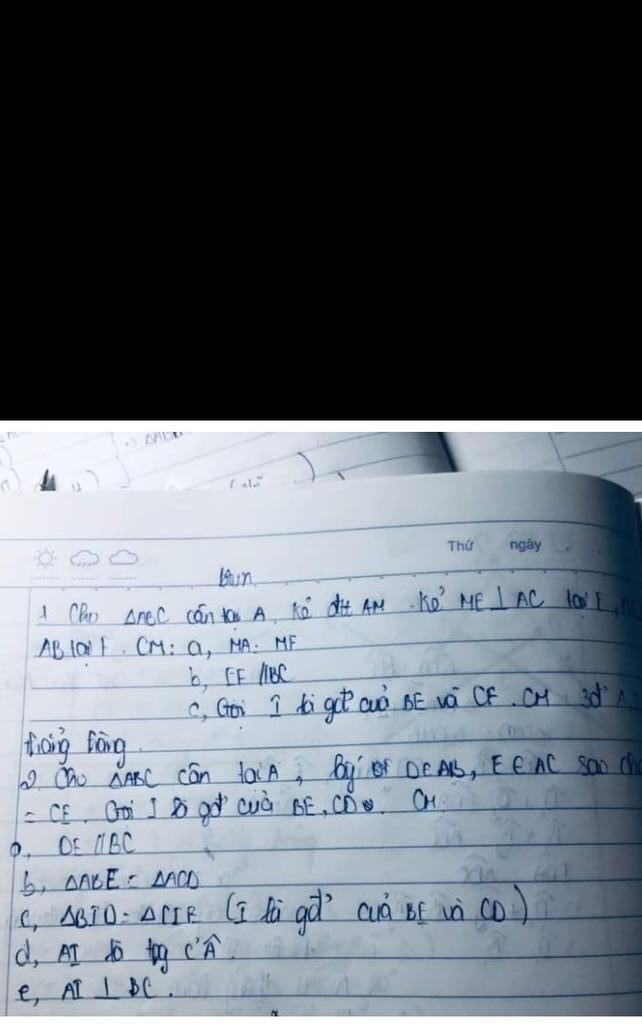 Thứ ngày
1 Cho ΔABC cân tại A, kẻ đtt AM. Kẻ ME ⊥ AC tại E,
AB tại F. CM: a, MA = MF
b, EF // BC
c, Gọi I là gđ' của BE và CF. CM 3đ' A,
thẳng hàng.
2 Cho ΔABC cân tại A, lấy D∈AB, E∈AC sao
= CE. Gọi I là gđ' của BE, CD. CM
a, DE // BC
b, ΔABE = ΔACD
c, ΔBID = ΔCIE (I là gđ' của BE và CD)
d, AI là tpg c' Â.
e, AI ⊥ BC.